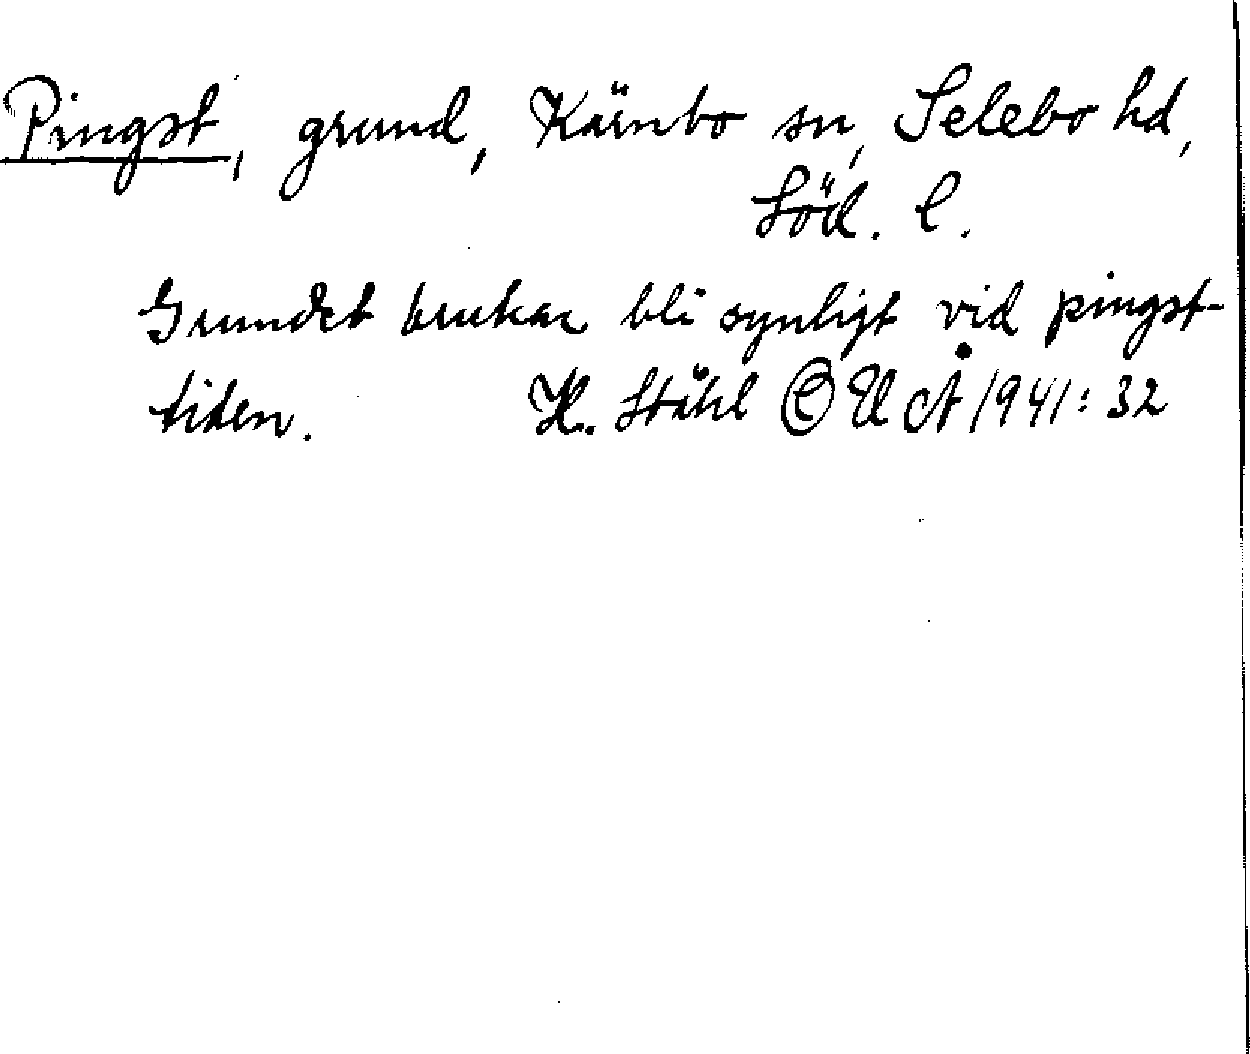 Pingst, grund, Kärnbo sn, Selebo hd,
Söd. l.
Grundet brukar bli synligt vid pingst-
tiden. H. Ståhl i UUÅ 1941: 32